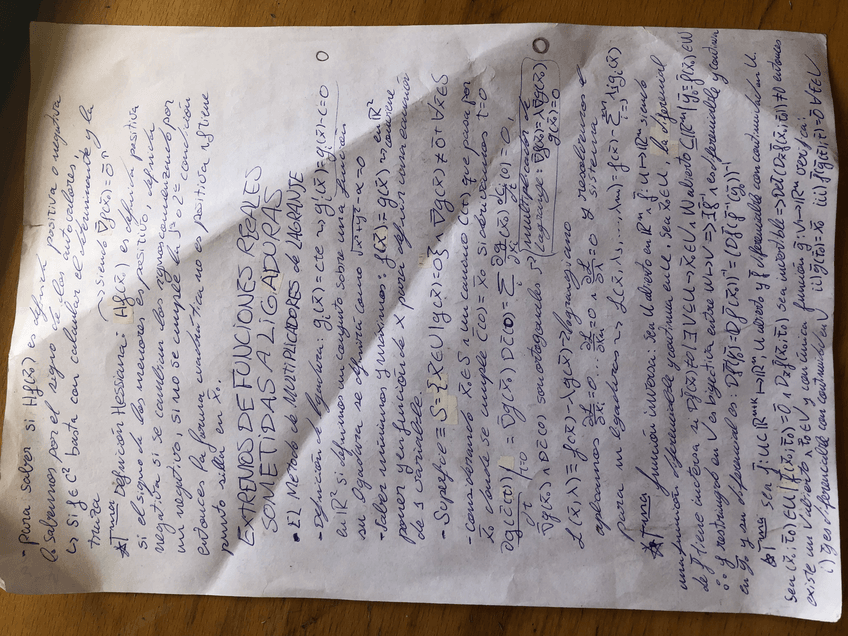 - Para saber si Hf(x̄₀) es definida positiva o negativa
lo sabremos por el signo de los autovalores,
↳ si f ∈ C² basta con calcular el determinante y la
traza
* Tma Definición Hessiana: Hf(x̄₀) es definida positiva
si el signo de los menores es positivo, definida
negativa si se cambian los signos comenzando por
un negativo, si no se cumple la 1ª o 2ª condición
entonces la forma cuadrática no es positiva y tiene
punto silla en x̄₀.
siendo ∇f(x̄₀) = 0̄
EXTREMOS DE FUNCIONES REALES
SOMETIDAS A LIGADURAS
• EL Método de MULTIPLICADORES de LAGRANGE
- Definición de ligadura: gᵢ(x̄) = cte ⇒ gᵢ'(x̄) = gᵢ(x̄) - c = 0
en ℝ² si definimos un conjunto sobre una función
su ligadura se define como √x²+y² - α = 0
- Saber mínimos y máximos: f(x̄) = g(x̄) ⇒ en ℝ² conviene
poner y en función de x para definir como extremos
de 1 variable
- Superficie ≡ S = {x̄ ∈ U | g(x̄) = 0} ∧ ∇g(x̄) ≠ 0̄ ∀x̄ ∈ S
- Considerando x̄₀ ∈ S ∧ un camino c̄(t) que pasa por
x̄₀ donde se cumple c̄(0) = x̄₀ si derivamos t = 0
∂g(c̄(t))/∂t |t=0 = ∇g(x̄₀) Dc̄(0) = Σ ∂g/∂xᵢ (x̄₀) dcᵢ/dt (0) = 0,
∇g(x̄₀) ∧ Dc̄(0) son ortogonales ⇒ multiplicación de
lagrange: ∇f(x̄₀) = λ∇g(x̄₀)
g(x̄₀) = 0
L(x̄, λ) = f(x̄) - λg(x̄) ⇒ lagrangiano
aplicamos ∂L/∂x₁ = 0, … ∂L/∂xₙ = 0 ∧ ∂L/∂λ = 0 y resolvemos el sistema
para m ligaduras ⇒ L(x̄, λ₁, … λm) = f(x̄) - Σ λᵢgᵢ(x̄)
* Tma función inversa: Sea U abierto en ℝⁿ ∧ f̄: U → ℝⁿ, siendo
una función diferenciable y continua en U. Sea x̄₀ ∈ U. La diferencial
de f̄ tiene inversa si Df̄(x̄₀) ≠ 0 | ∃ V ∈ U → x̄₀ ∈ V ∧ W abierto ⊆ ℝⁿ | ȳ₀ = f̄(x̄₀) ∈ W
∴ f̄ restringida en V es bijectiva entre V → W ⇒ ∃ f̄⁻¹ ∧ es diferenciable y continua
en ȳ₀ y su diferencial es: Df̄⁻¹(ȳ) = Df̄(x̄)⁻¹ = (Df̄(f̄⁻¹(ȳ)))⁻¹
* Tma sea f̄: U ⊂ ℝⁿ⁺ᵏ → ℝᵐ, U abierto y f̄ diferenciable con continuidad en U.
Sea (x̄₀; z̄₀) ∈ U | f̄(x̄₀; z̄₀) = 0̄ ∧ Dz f̄(x̄₀; z̄₀) sea invertible ⇒ Det(Dz f̄(x̄₀; z̄₀)) ≠ 0 entonces
existe un V abierto ∧ x̄₀ ∈ V y con única función ḡ: V → ℝᵐ verifica:
i) ḡ es diferenciable con continuidad en V ii) ḡ(x̄₀) = z̄₀ iii) f̄(x̄; ḡ(x̄)) = 0 ∀x̄ ∈ V